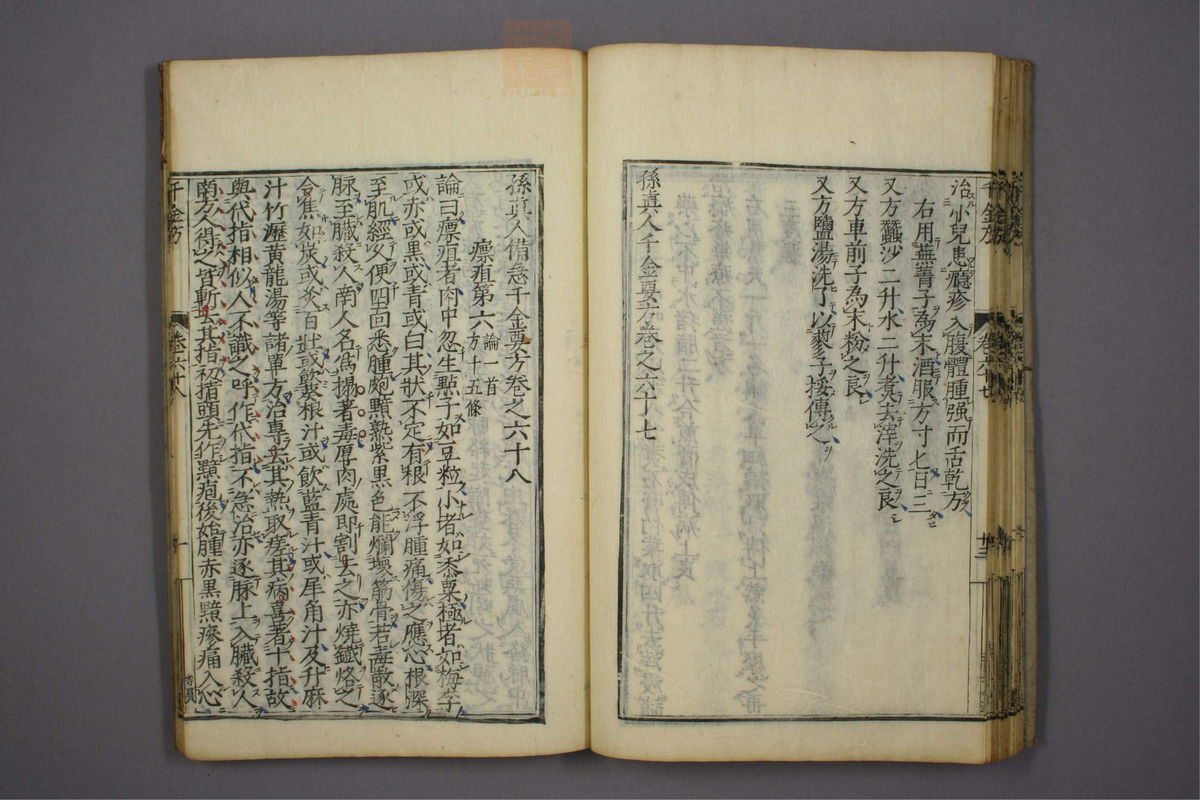 治小兒患癮疹入腹體腫强而舌乾方
右用蕪菁子為末酒服方寸匕日三
又方蠶沙二升水二升煮去滓洗之良
又方車前子為末粉之良
又方鹽湯洗了以蓼子挼傅之
孫真人千金要方卷之六十七
孫真人備急千金要方卷之六十八
瘭疽第六 論一首 方十五條
論曰瘭疽者肉中忽生點子如豆粒小者如黍粟極者如梅李
或赤或黑或青或白其狀不定有根不浮腫痛傷之應心根深
至肌經久便四回悉腫皰黯熟紫黑色能爛壞筋骨若毒散逐
脉至臟殺人南人名為搨著毒厚肉處即割去之亦燒鐵烙之
令焦如炭或灸百壯或飲葵根汁或飲藍青汁或犀角汁及升麻
汁竹瀝黄龍湯等諸單方治專去其熱取瘥其病喜著十指故
與代指相似人不識之呼作代指不急治亦逐脉上入臟殺人
南人得之皆斬去其指初指頭先作黯疱後始腫赤黑黯瘮痛入心
千金方
卷六十八